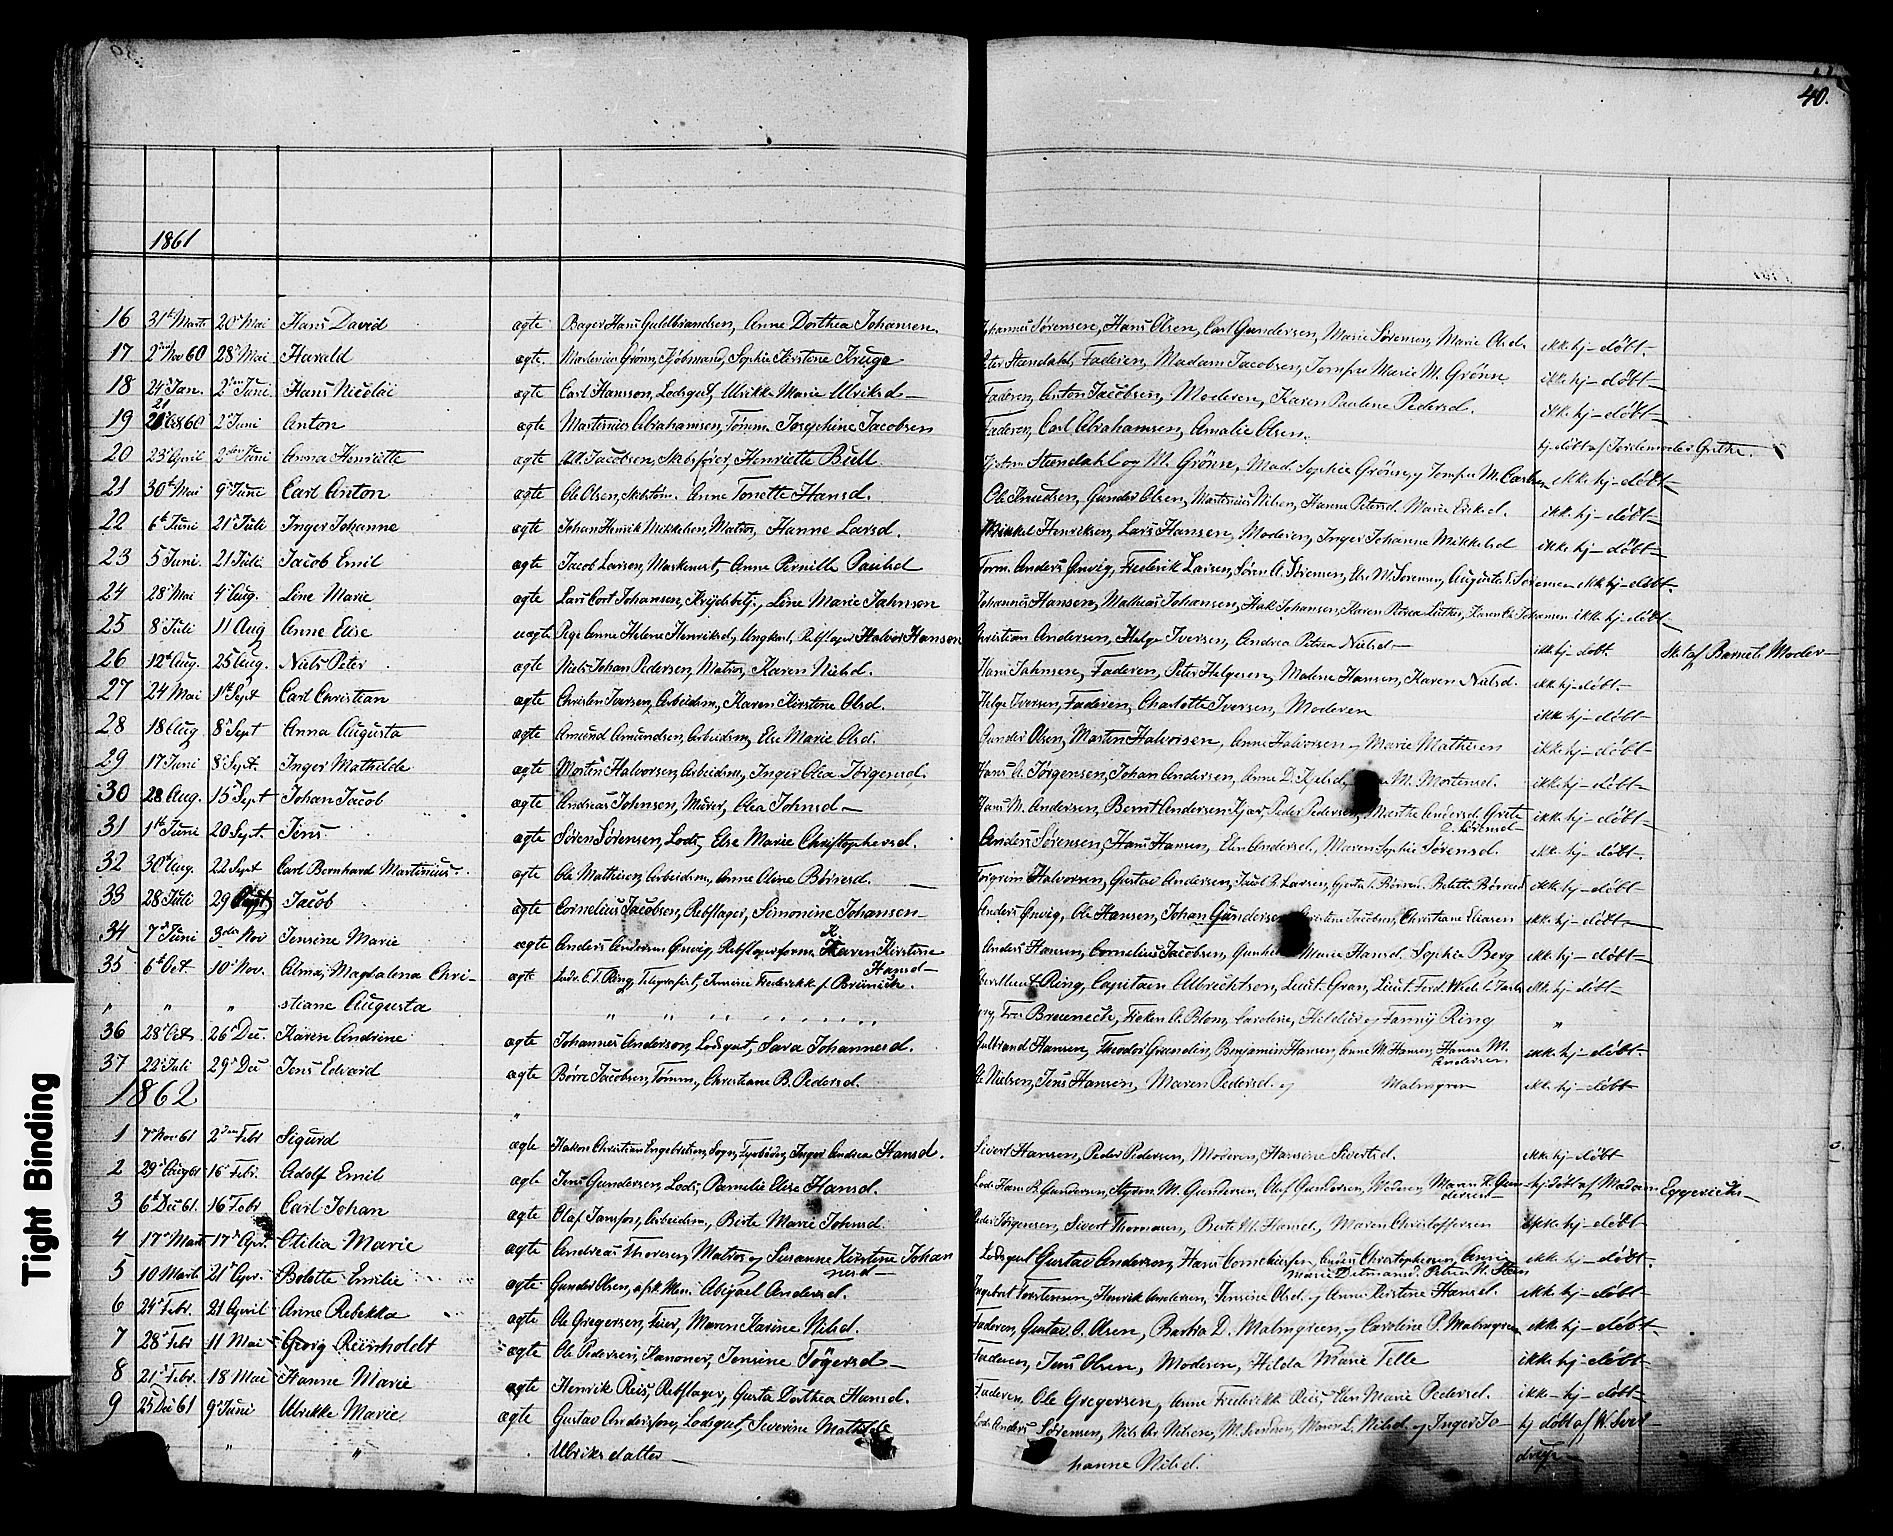 40.
1861
16 31te Marts 20de Mai Hans David ægte Bager Hans Guldbrandsen, Anne Dorthea Johansen Johannes Sørensen, Hans Olsen, Carl Gundersen, Marie Sørensen, Marie Olsd. ikke hj-døbt
17 2den Nov 60 28de Mai Harald ægte Martinius Grönn, Kjöbmand, Sophie Kirstine Kruge Peter Stendahl, Faderen, Madam Jacobsen, Jomfru Marie M. Grönn ikke hj-døbt
18 24de Jan. 2den Juni Hans Nicolai ægte Carl Hansson, Lodsgut, Ulrikke Marie Ulriksd Faderen, Anton Jacobsen, Moderen, Karen Pauline Pedersd. ikke hj-døbt
19 21 60 2den Juni Anton ægte Martinius Abrahamsen, Tömm. Josephine Jacobsen Faderen, Carl Abrahamsen, Amalie Olsen. hj. døbt af Jordemoder Grethe.
20 23de April 2den Juni Anna Henriette ægte Jacobsen, Skibsfører, Henriette Bull Stendahl og M. Grönn, Mad. Sophie Grönn, og Jomfru M. Carlsen ikke hj-døbt
21 30te Mai 9de Juni Carl Anton ægte Ole Olsen, Skibstøm. Anne Tonette Hansd. Ole Knudsen, Gunder Olsen, Martinius Nilsen, Hanne Petersd. Marie ikke hj-døbt
22 6te Juni 21de Juli Inger Johanne ægte Johan Henrik Mikkelsen, Matros, Hanne Larsd. Mikkel Henriksen, Lars Hansen, Moderen, Inger Johanne Mikkelsd ikke hj-døbt
23 5te Juni. 21 Juli Jacob Emil ægte Jacob Larsen, Maskinist, Anne Pernille Paulsd Anders Qnvig, Frederik Larsen, Søren A. Sørensen, Else M. Sørensen, Augusta Sørensen ikke hj-døbt.
24 28de Mai 4de Aug. Line Marie ægte Lars Cort Johansen, Line Marie Jahnson Johannes Hansen, Mathias Johansen, Johansen, Maren Luther, Karen Johansen ikke hj-døbt
25 8de Juli 11 Aug Anne Elise uægte Pige Anne Helene Henriksd, Ungkarl, Rebslager Halvor Hanson Christian Andersen, Helge Iversen, Andrea Petrea Nielsd ikke hj-døbt. af Barnets Moder
26 12te Aug. 25 Aug. Niels Peter ægte Niels Johan Pedersen, Matros, Karen Nielsd. Hans Jahnsen, Faderen, Peter Helgesen, Malene Hansen, Karen Nielsd. ikke hj-døbt.
27 24 Mai 1ste Sept Carl Christian ægte Christen Iversen, Arbeidsm, Karen Kirstine Olsd. Helge Iversen, Faderen, Charlotte Iversen, Moderen ikke hj-døbt
28 18 Aug 8de Sept Anna Augusta ægte Amund Amundsen, Arbeidsm, Else Marie Olsd. Gunder Olsen, Martin Halvorsen, Anne Halvorsen Marie Mathisen ikke hj-døbt
29 17 Juni 8de Sept. Inger Mathilde ægte Morten Halvorsen, Arbeidsm, Inger Olea Jörgensd. Hans A. Jørgensen, Johan Andersen, Anne D. M. Mortensd. ikke hj-døbt
30 28 Aug. 15de Sept Johan Jacob ægte Andreas Johnsen, Murer, Olea Johnsd Hans M. Andersen, Bernt Andersen Peder Pedersen, Marthe Andersd. Grete ikke hj-døbt
31 1ste Juni 20 Sept. Jens ægte Søren Sørensen, Lods, Else Marie Christophersd. Anders Sørensen, Hans Hansen, Elen Andersd, Maren Sophie Sørensd. ikke hj-døbt.
32 30te Aug. 22 Sept Carl Bernhard Martinius ægte Ole Mathisen, Arbeidsm, Anne Oline Börresd. Torgrim Halvorsen, Gustav Andersen, Jacob R. Larsen, Bolette Börresd ikke hj-døbt
33 28 Juli 29 Sept Jacob ægte Cornelius Jacobsen, Rebslager, Simonine Johansen Anders Qnvig, Ole Hansen, Johan Gundersen Jacobsen, Christiane Eliasen ikke hj-døbt
34 7de Juni 3die Nov Jensine Marie ægte Anders Andersen Qnvig, Rebslagerform, Karen Kirstine Hansd Anders Hansen, Cornelius Jacobsen, Marie Hansd. Sophie Berg ikke hj-døbt
35 6te Oct. 10de Nov. Alma, Magdalena Chri- ægte C. T. Ring, Telegrafist, Jensine Frederikke f. Ring, Capitain Albrechtson, Lieut. Gran, Lieut. Ferd. ikke hj-døbt
" " " stiane Augusta " " Frøken A. Blom, Hilda og Fanny Ring "
36 28de Oct. 26de Dec. Karen Andrine ægte Johannes Anderson, Lodsgut, Sara Johannesd. Gulbrand Hansen, Theodor Benjamin Hansen, Anne M. Hansen, Hanne M. Andersen ikke hj-døbt
37 22de Juli 29de Dec Jens Edvard ægte Börre Jacobsen, Tömm, Christiane B. Pedersd. Ole Nielsen, Jens Hansen, Maren Pedersd. og Malmgren ikke hj-døbt
1862
1 7de Nov 61 2den Febr Sigurd ægte Hakon Christian Engebretsen, Fyrbøder, Inger Andrea Hansd. Sivert Hansen, Peder Pedersen, Moderen, Hansine Sivertsd. ikke hj-døbt
2 29de Aug 61 16de Febr. Adolf Emil ægte Jens Gundersen, Lods, Pamelie Elise Hansd. Lods Hans B. Gundersen, Styrm. M. Gundersen, Oluf Gundersen, Moderen, Maren K. Gun- dersen hj. døbt af Madam Eggerichs
3 6te Dec 61. 16 Febr Carl Johan ægte Olaf Jansson, Arbeidsm, Birte Marie Johnsd. Peder Jørgensen, Sivert Thomasen, Berte M. Hansd, Maren Christoffersen ikke hj-døbt
4 17de Marts 17de Apr. Otilia Marie ægte Andreas Thoresen, Matros og Susanne Kirstine Johan nesd Lodsgut Gustav Anderson, Hans Corneliussen, Anders Christophersen, Anne Marie Ditmansd. Petrea N. Steen ikke hj-døbt.
5 10 Marts 21de Apr. Bolette Emilie ægte Gunder Olsen, afsk. Abigael Andersd. Ingebret Torstensen, Henrik Andersen, Jensine Olsd. og Anne Kirstine Hansd. ikke hj-døbt
6 24de Febr. 21 April Anne Rebekka ægte Ole Gregersen, Maren Karine Nilsd. Faderen, Gustav O. Olsen, Bartha D. Malmgreen, og Caroline P. Malmgreen ikke hj-døbt
7 28de Febr 11 Mai Georg Reinholdt ægte Ole Pedersen, Kanoner, Jensine Tögersd Faderen, Jens Olsen, Moderen, Hilda Marie Telle ikke hj-døbt
8 21de Febr. 18 Mai Hanne Marie ægte Henrik Reis, Rebslager, Gusta Dorthea Hansd. Faderen, Ole Gregersen, Anne Frederikke Reis, Elen Marie Pedersd. ikke hj-døbt
9 25 Dec 61 9de Juni Ulrikke Marie ægte Gustav Andersson, Lodsgut, Severine Mathilde Lods Anders Sørensen, Nils Chr. Nilsen, M. Svendsen, Maren L. Nilsd. og Inger Jo- hj. døbt af
" " " Ulriksdatter hanne Nilsd.
Tight Binding